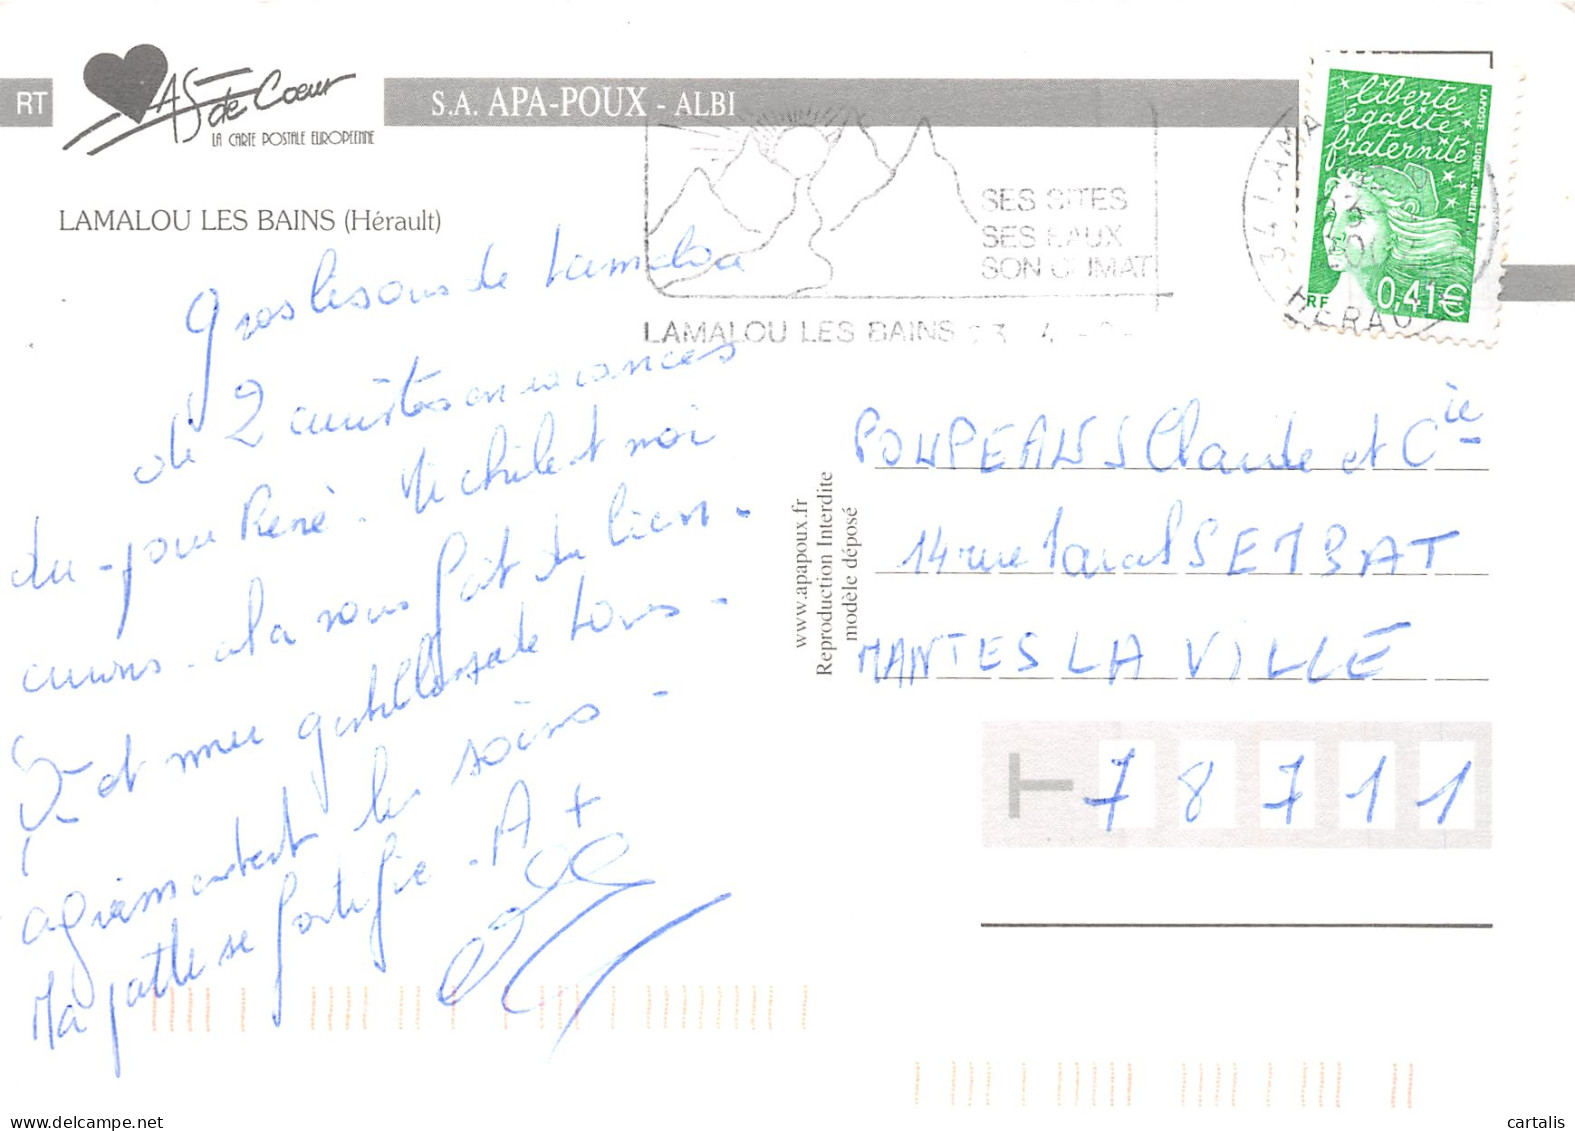 RT
AS de Coeur
LA CARTE POSTALE EUROPEENNE
S.A. APA-POUX - ALBI
LAMALOU LES BAINS (Hérault)
SES SITES
SES EAUX
SON CLIMAT
LAMALOU LES BAINS
34 LAMA
HERAU
liberté
égalité
fraternité
LA POSTE
LUQUET. JUMELET
RF
0,41€
Gros bisous de Lamalou
de 2 curistes en vacances
du - pour René - Michèle et moi
nous fait du bien -
et
agrémentent les soins -
Ma patte se fortifie - A +
www.apapoux.fr
Reproduction Interdite
modèle déposé
Claude et Cie
14 rue
MANTES LA VILLE
78711
cartalis
www.delcampe.net